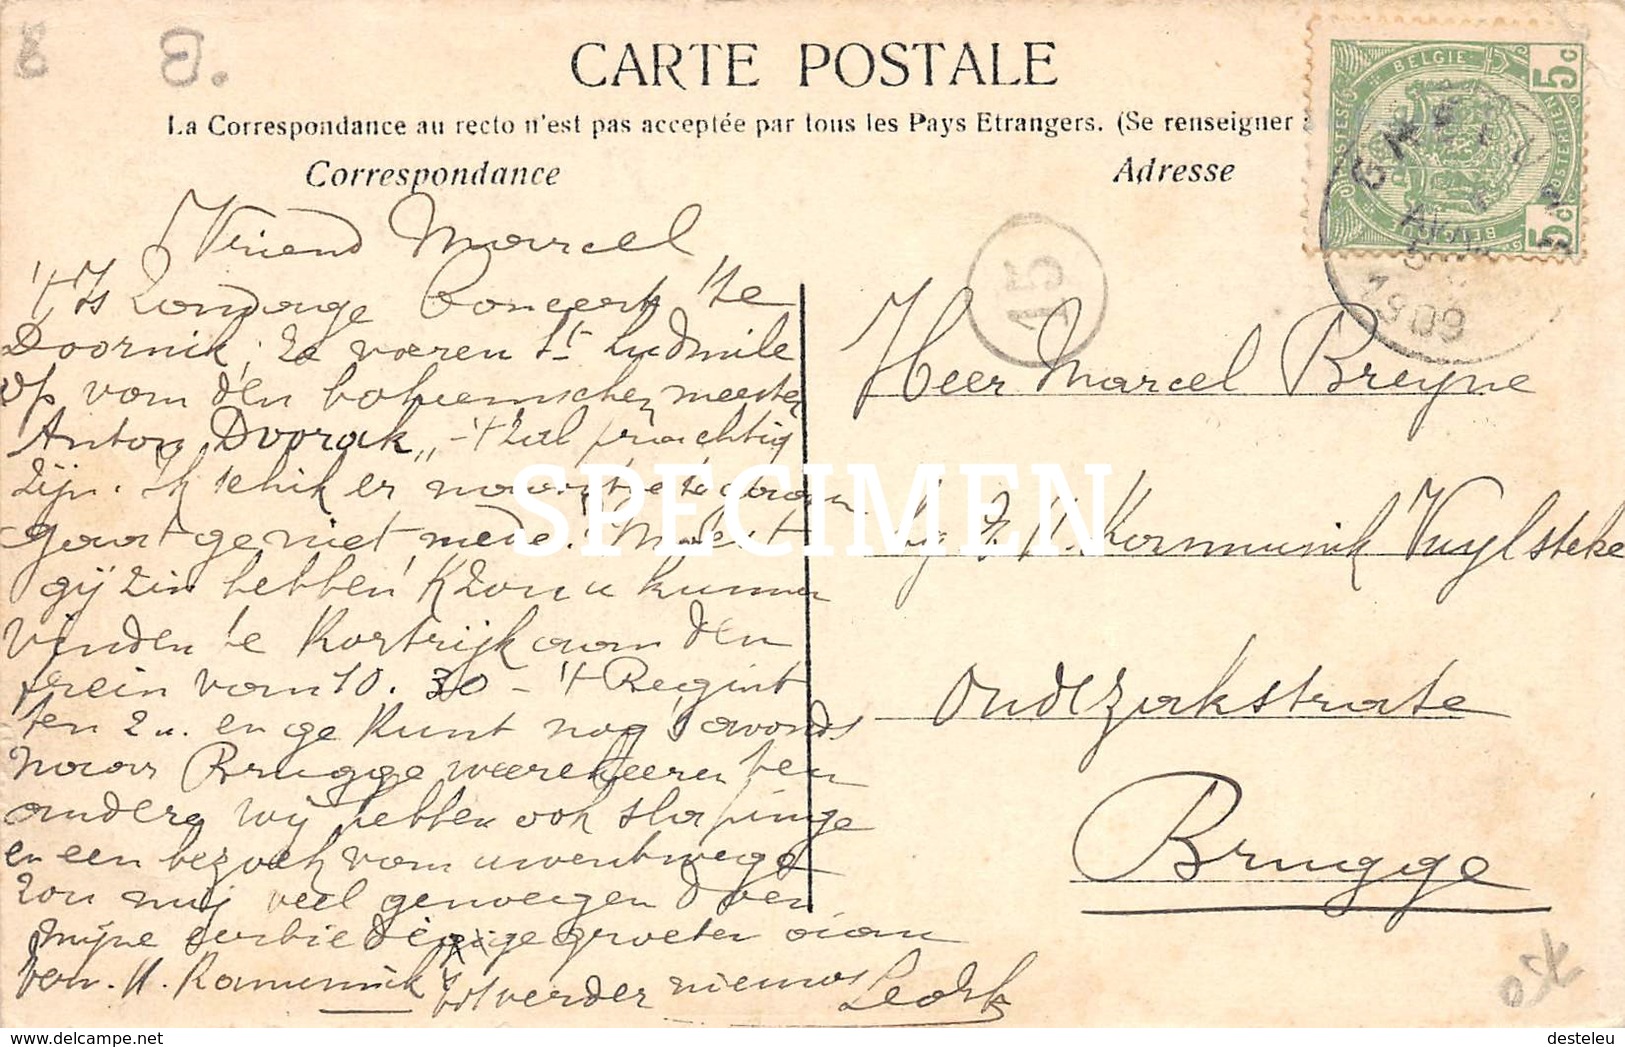 CARTE POSTALE
La Correspondance au recto n'est pas acceptée par tous les Pays Etrangers. (Se renseigner
Correspondance
Adresse
BELGIE
5c
5c
1909
Vriend Marcel
't Is Zondage Concert te
Doornik; Ze voeren St Ludmile
op van den bohemschen meester
Anton Dvorak,, -'t zal prachtig
zijn. Ik schik er naartoe te
gaat ge niet mede? Moest
gij zin hebben 'K zou u kunnen
vinden te Kortrijk aan den
trein van 10.30 - 't Begint
ten 2 u. en ge kunt nog 's avonds
naar Brugge weerkeeren ten
anderen wij hebben ook slapinge
en een bezoek van uwentwege
zou mij veel genoegen doen
mijne eerbiedige groeten aan
Eerw. H. Kanunnik
tot verder nieuws
Heer Marcel Breyne
bij Z. E. H. Kannunik Vuylsteke
Oude Zakstrate
Brugge
SPECIMEN
www.delcampe.net
desteleu